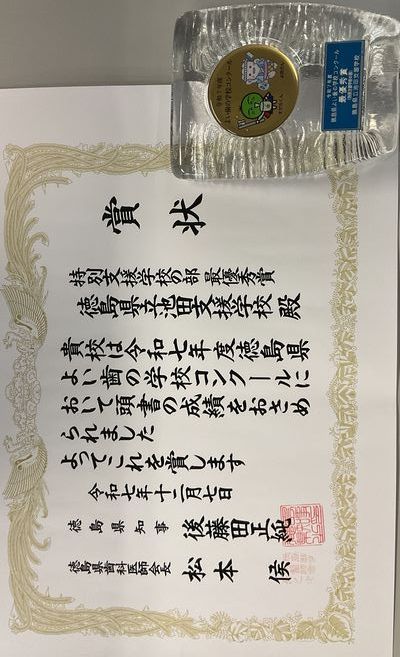 賞状
特別支援学校の部 最優秀賞
徳島県立池田支援学校 殿
貴校は令和七年度徳島県
よい歯の学校コンクールに
おいて頭書の成績をおさめ
られました
よってこれを賞します
令和七年十二月七日
徳島県知事 後藤田正純
徳島県歯科医師会長 松本 侯
令和7年度
よい歯の学校コンクール
令和7年度
徳島県よい歯の学校コンクール
最優秀賞
徳島県立池田支援学校